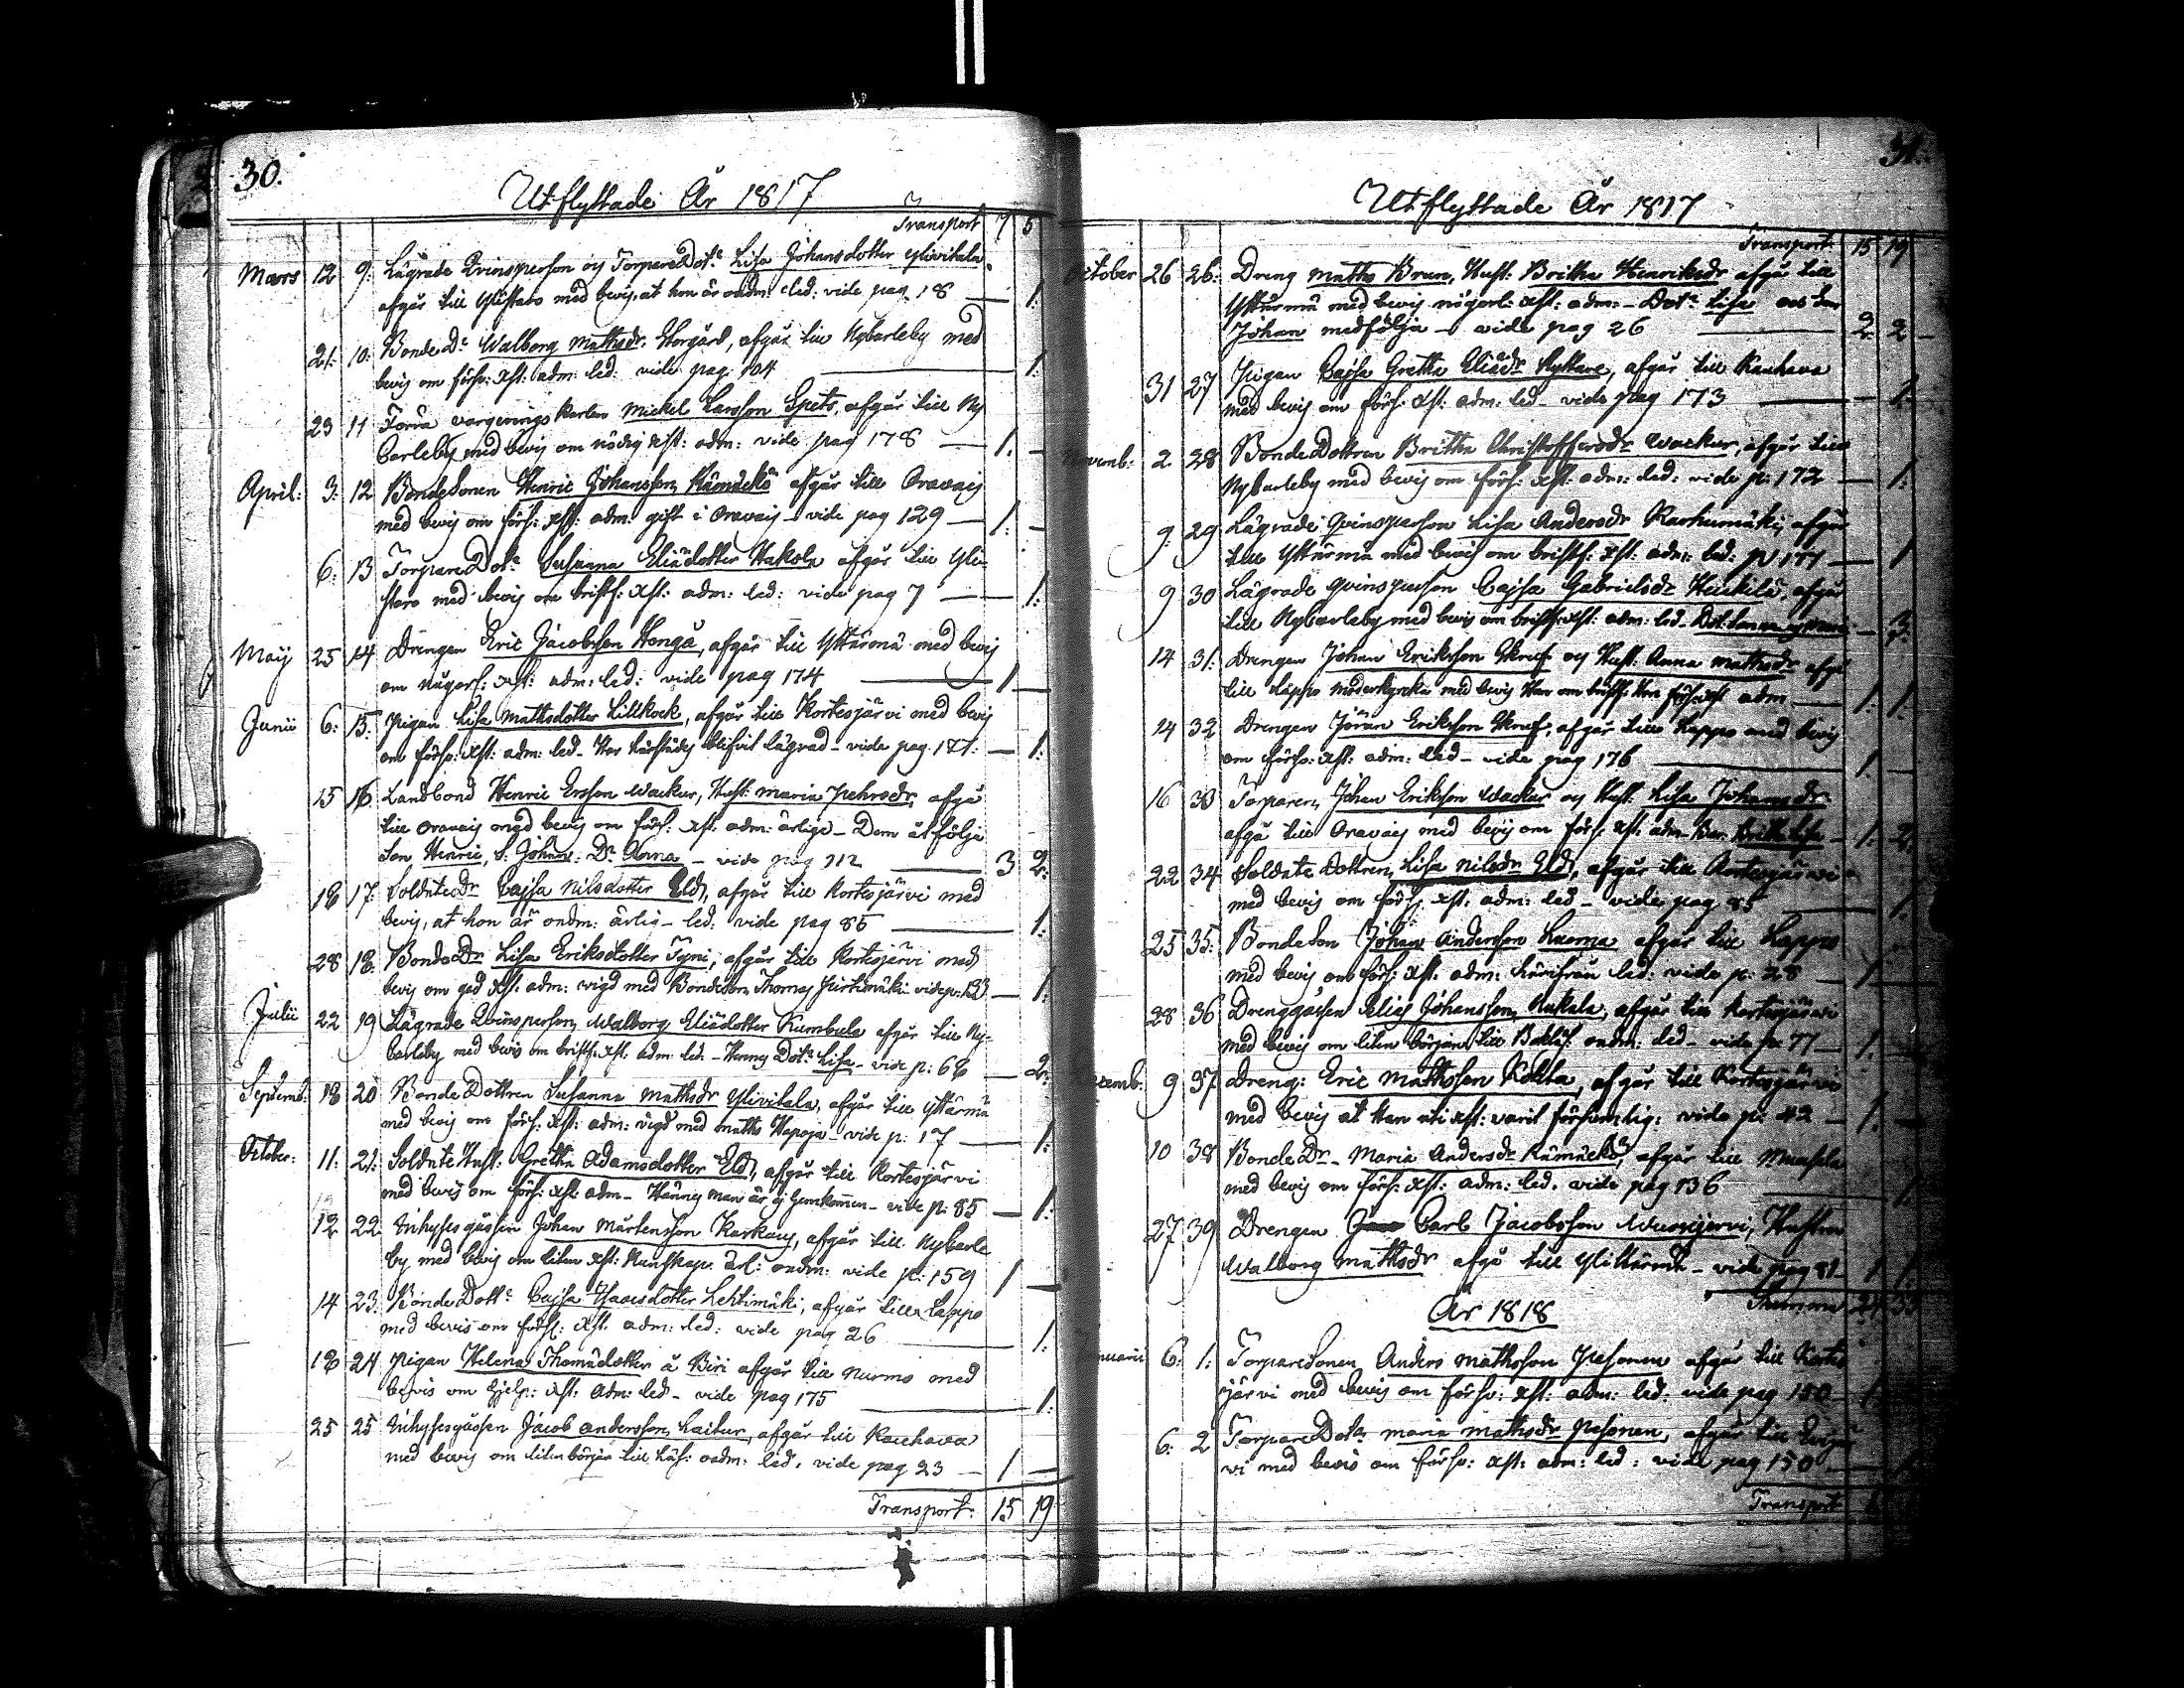 30.
Utflyttade År 1817
Transport 7 5
Mars 12 9. Lägrade Qvinsperson og TorpareDotr Lisa Johansdotter Ylivitala
afgår till Ylistaro med bevis, at hon är oadm: led: vide pag. 18 — 1:
21. 10. Bonde Dr Walborg Mathsdr. Storgård, afgår till Nykarleby med
bevis om försv: Xst: adm: led: vide pag: 104 — 1:
23 11 Förra vargerings karlen Mickel Larsson Spets, afgår till Ny
Carleby med bevis om nödig Xst: adm: vide pag 178 — 1. —
April: 3. 12 BondeSonen Henric Johansson Kämäckö afgår till Oravais
med bevis om förs: Xst: adm: gift i Oravais — vide pag 129 — 1. —
6: 13 TorpareDotr Susanna Eliædotter Hakola afgår till Yli-
staro med bevis om bristf: Xst: adm: led: vide pag 7 — 1:
Maij 25 14 Drengen Eric Jacobsson Honga, afgår till Yttärmä med bevis
om någorl: Xst: adm: led: vide pag 174 — 1 —
Junii 6: 15. Pigan Lisa Mathsdotter Lillkock, afgår till Kortesjärvi med bevis
om försv: Xst: adm: led. Har härstädes blifvit lägrad — vide pag. 177: — 1:
15 16 Landbond Henric Ersson Wackur, Hust: Maria Pehrsdr, afgå
till Oravais med bevis om förs: Xst: adm: ärlige — Dem åtfölja
Son Henric, S. Johan: Dr Anna — vide pag 112 — 3 2:
18 17: Soldatedr Cajsa Nilsdotter Eld, afgår till Kortesjärvi med
bevis, at hon är oadm: ärlig — led: vide pag 85 — 1:
28 18: BondeDr Lisa Eriksdotter Tyni, afgår till Kortesjärvi med
bevis om god Xst: adm: vigd med BondeSon Thomas Pirtimäki vide p: 133 — 1:
Julii 22 19 Lägrade Qvinsperson Walborg Eliædotter Kumbula afgår till Ny-
Carleby med bevis om bristf: Xst: adm: led. — Hennes Dotr Lisa — vide p: 68 — 2:
Septemb: 18 20 Bonde Dottren Susanna Mathsdr Ylivitala, afgår till Yttärmä
med bevis om förs: Xst: adm: vigd med Maths Hapoja — vide p: 17 — 1:
October: 11: 21: Soldate Hust: Gretha Adamsdotter Eld, afgår till Kortesjärvi
med bevis om förs: Xst: adm — Hännes man är ej hemkommen — vide p: 85 — 1:
12 22 Inhysesgåssen Johan Mårtensson Karkaus, afgår till Nykarle
by med bevis om liten Xst: Kunskap. ärl: oadm: vide p: 159 1 —
14 23: Bonde Dottr Cajsa Isacsdotter Lehtimäki, afgår till Lappo
med bevis om försv: Xst. adm: led: vide pag 26 — 1:
18 24 Pigan Helena Thomædotter å Biri afgår till Nurmo med
bevis om hjelp: Xst: Adm: led — vide pag 175 — 1:
25 25 Inhysesgåssen Jacob Andersson Laitur, afgår till Kauhava
med bevis om liten början till Läs: oadm: led. vide pag 23 — 1 —
Transport. 15 19
31.
Utflyttade År 1817
Transport 15 19
October 26 26: Dreng Maths Brun, Hust: Britha Henriksdr afgår till
Yttärmä med bevis någorl: Xst: adm: — Dotr Lisa och Son
Johan medfölja — vide pag 26 — 2. 2 —
31 27 Pigan Cajsa Gretha Eliædr Ryttare, afgår till Kauhava
med bevis om försv: Xst: adm: led — vide pag 173 — 1:
2. 28 Bonde Dottren Britha Christoffersdr Wackur, afgår till
Nykarleby med bevis om försv: Xst: adm: led: vide p: 172 — 1:
9. 29 Lägrade Qvinsperson Lisa Andersdr Karhumäki, afgår
till Yttärmä med bevis om bristf: Xst: adm: led: p: 177 — 1
9 30 Lägrade Qvinsperson Cajsa Gabrielsdr Heickilä, afgår
till Nykarleby med bevis om bristf: Xst: adm: led — 3:
14 31: Drengen Johan Eriksson Skruf og Hust: Anna Mathsdr afgå
till Lappo Moderkyrka med bevis Han om bristf: Hon försv: Xst adm — 1: 1:
14 32 Drengen Jöran Eriksson Skruf, afgår till Lappo med bevis
om försv: Xst: adm: led — vide pag 176 — 1. —
16 33 Torparen Johan Eriksson Wackur og Hust: Lisa Johansdr
afgå till Oravais med bevis om förs: Xst: adm — Bar. Britha Lisa — 1: 2.
22 34 Soldate Dottren Lisa Nilsdr Eld, afgår till Kortesjärvi
med bevis om försv: Xst: adm: led — vide pag 85 — 1.
25 35: BondeSon Johan Andersson Luoma afgår till Lappo
med bevis om försv: Xst: adm: härifrån led: vide p: 28 — 1 —
28 36 Drenggåssen Elias Johansson Rukala, afgår till Kortesjärvi
med bevis om liten början till Bokläs: oadm: led — vide p: 77 — 1.
9 37 Dreng: Eric Mathsson Kolita, afgår till Kortesjärvi
med bevis at Han uti Xst: varit försumlig: vide p: 42 — 1. —
10 38 BondeDr — Maria Andersdr Kämäckö, afgår till
med bevis om försv: Xst: adm: led. vide pag 136 — 1.
27 39 Drengen Carl Jacobsson Wuosjervi, Hustrun
Walborg Mathsdr afgå till Ylihärmä — vide pag 81 — 1 1:
Summa
År 1818
6: 1: TorpareSonen Anders Mathsson Pesonen afgår till Kortes
järvi med bevis om försv: Xst: adm: led: vide pag 150 — 1
6: 2 TorpareDotr Maria Mathsdr Pesonen, afgår till
vi med bevis om försv: Xst: adm: led: vide pag 150 — 1
Transport